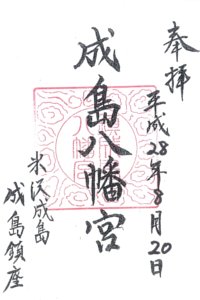 奉拝
平成28年8月20日
成島八幡宮
米沢成島
成島鎮座